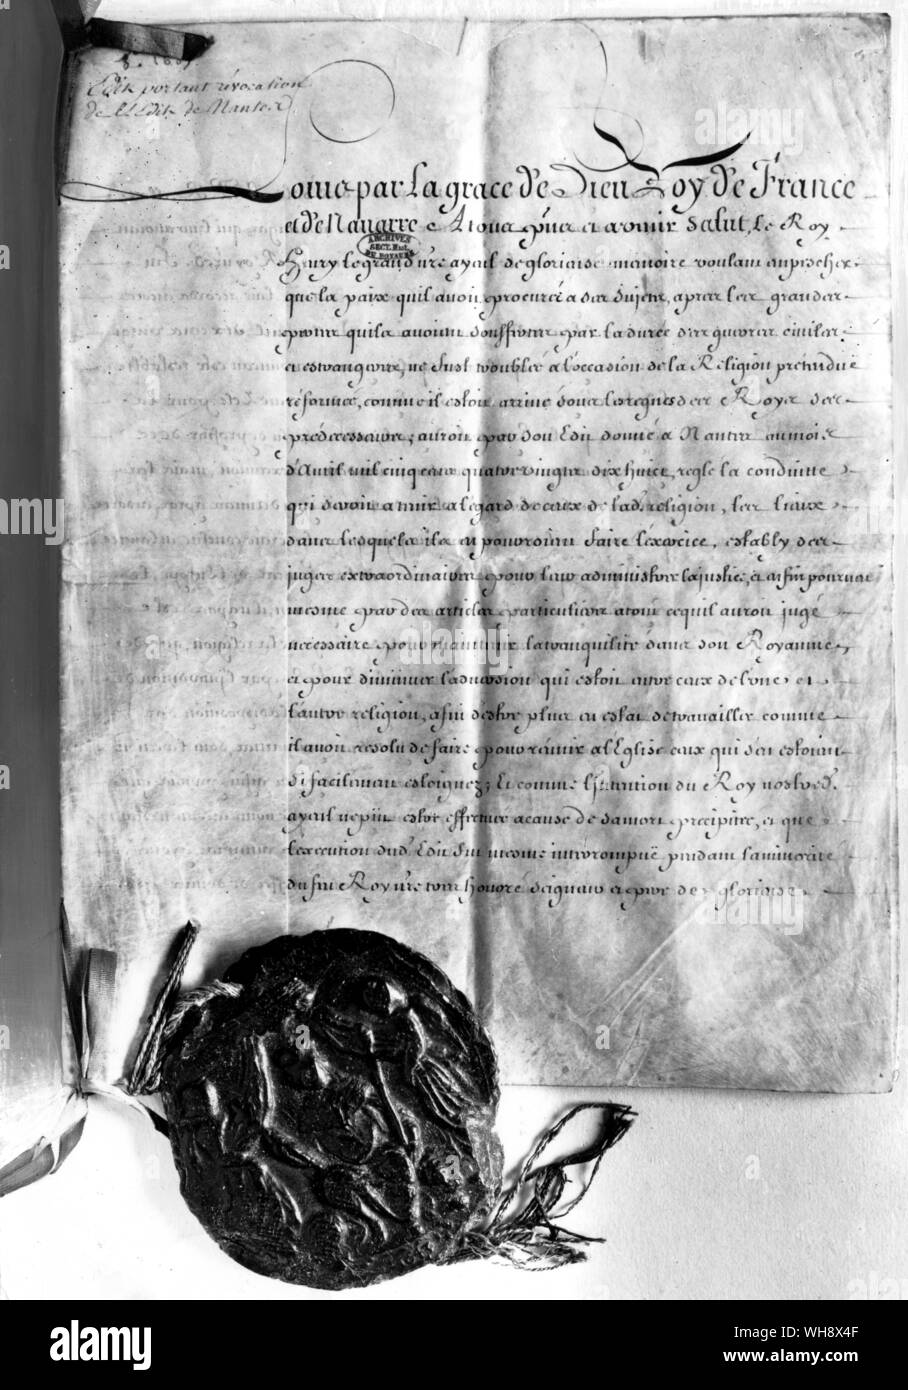 8. 1685
Edit portant révocation
de l'Edit de Nantes
Louis par la grace de Dieu Roy de France
et de Navarre A tous pñs et a venir Salut, Le Roy
ARCHIVES
SECT. HIST.
DU ROYAUME
Henry le grand ñre ayeil de glorieuse memoire voulant empescher
que la paix qu'il avoit procurée a ses Sujets, apres les grandes
pertes qu'ils avoient souffertes par la durée des guerres civiles
et estrangeres, ne fust troublée a l'occasion de la Religion pretendue
réformée, comme il estoit arrivé sous les regnes des Roys ses
predecesseurs; auroit par son Edit donné a Nantes au mois
d'Avril mil cinq cens quatre vingts dix huict, reglé la conduitte
qui devoit a tenir a l'égard de ceux de lad. religion, les lieux
dans lesquels ils en pourroient faire l'exercice, estably des
juges extraordinaires pour leur administrer la justice, et enfin pourvu
mesme par des articles particuliers a tout ce qu'il auroit jugé
nécessaire pour maintenir la tranquilité dans son Royaume,
et pour diminuer l'adversion qui estoit entre ceux de l'une et
l'autre religion, afin d'estre plus en estat de travailler comme
il avoit resolu de faire pour réunir a l'Eglise ceux qui s'en estoient
si facilement esloignez; Et comme l'intention du Roy nostred.
ayeil ne pût estre effectuée a cause de sa mort precipitée, et que
l'execution dud. Edit fut mesme interrompuë pendant la minorité
du feu Roy ñre tres honoré seigneur et pere de glorieuse
alamy
WH8X4F